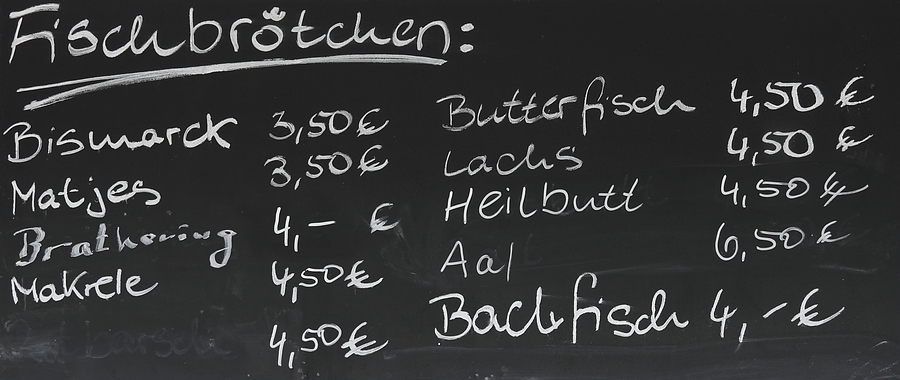 Fischbrötchen:
Bismarck 3,50 €
Matjes 3,50 €
Brathering 4,- €
Makrele 4,50 €
4,50 €
Butterfisch 4,50 €
Lachs 4,50 €
Heilbutt 4,50 €
Aal 6,50 €
Backfisch 4,- €